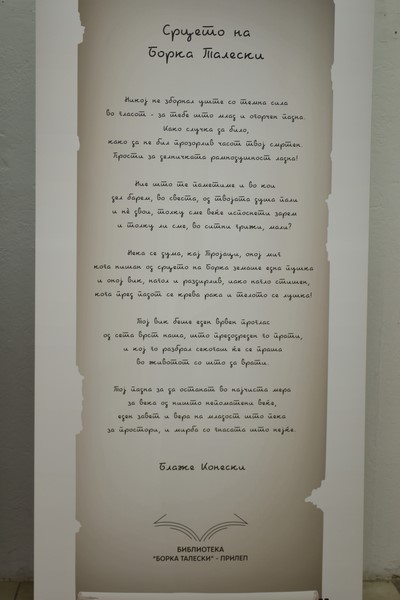 Срцето на
Борка Талески
Никој не зборнал уште со темна сила
во гласот - за тебе што млад и огорчен падна.
Како случка да било,
како да не бил прозорлив часот твој смртен.
Прости за делничката рамнодушност ладна!
Ние што те паметиме и во кои
дел барем, во свеста, од твојата душа пали
и нѐ двои, толку сме веќе испоснети зарем
и толку ли сме, во ситни грижи, мали?
Нека се дума, кај Пројаци, оној миг
кога нишан од срцето на Борка земаше една пушка
и оној вик, нагол и раздирлив, иако нагло стишен,
кога пред падот се крева рака и телото се лушка!
Тој вик беше еден врвен проглас
од сета врст наша, што предодреден го прати,
и кој го разбрал секогаш ќе се праша
во животот со што да врати.
Тој падна за да останат во најчиста мера
за века од ништо непоматени веќе,
еден завет и вера на младост што пека
за простори, и мирба со гнасата што нејќе.
Блаже Конески
БИБЛИОТЕКА
"БОРКА ТАЛЕСКИ" - ПРИЛЕП